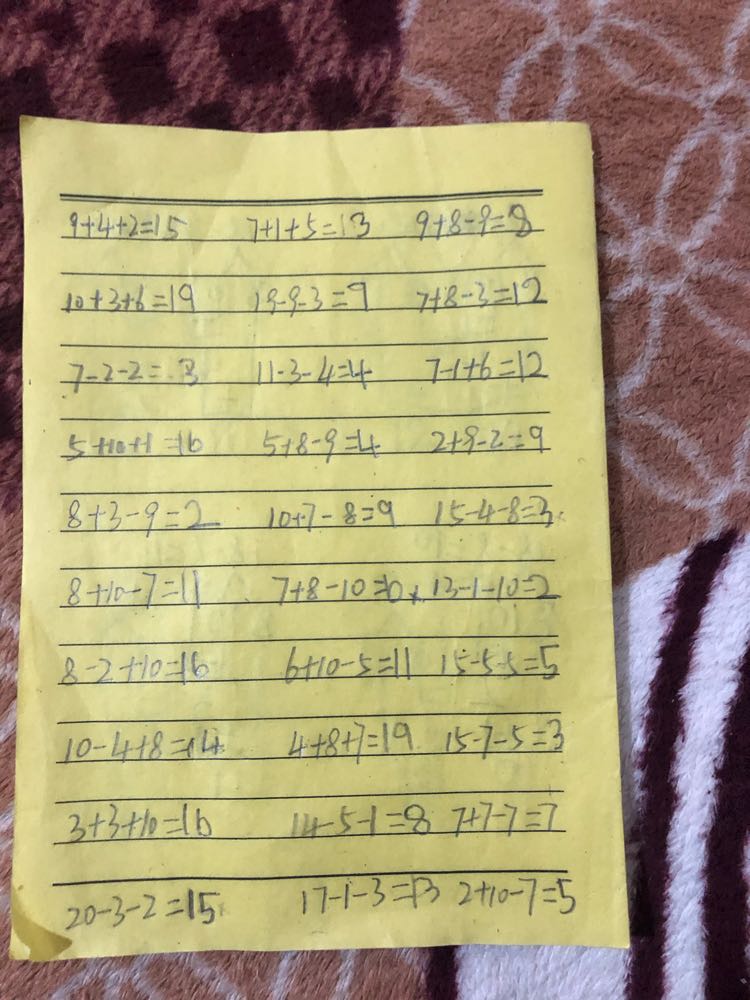 9+4+2=15 7+1+5=13 9+8-9=8
10+3+6=19 19-9-3=9 7+8-3=12
7-2-2=3 11-3-4=4 7-1+6=12
5+10+1=16 5+8-9=4 2+9-2=9
8+3-9=2 10+7-8=9 15-4-8=3
8+10-7=11 7+8-10=6 13-1-10=2
8-2+10=16 6+10-5=11 15-5-5=5
10-4+8=14 4+8+7=19 15-7-5=3
3+3+10=16 14-5-1=8 7+7-7=7
20-3-2=15 17-1-3=13 2+10-7=5